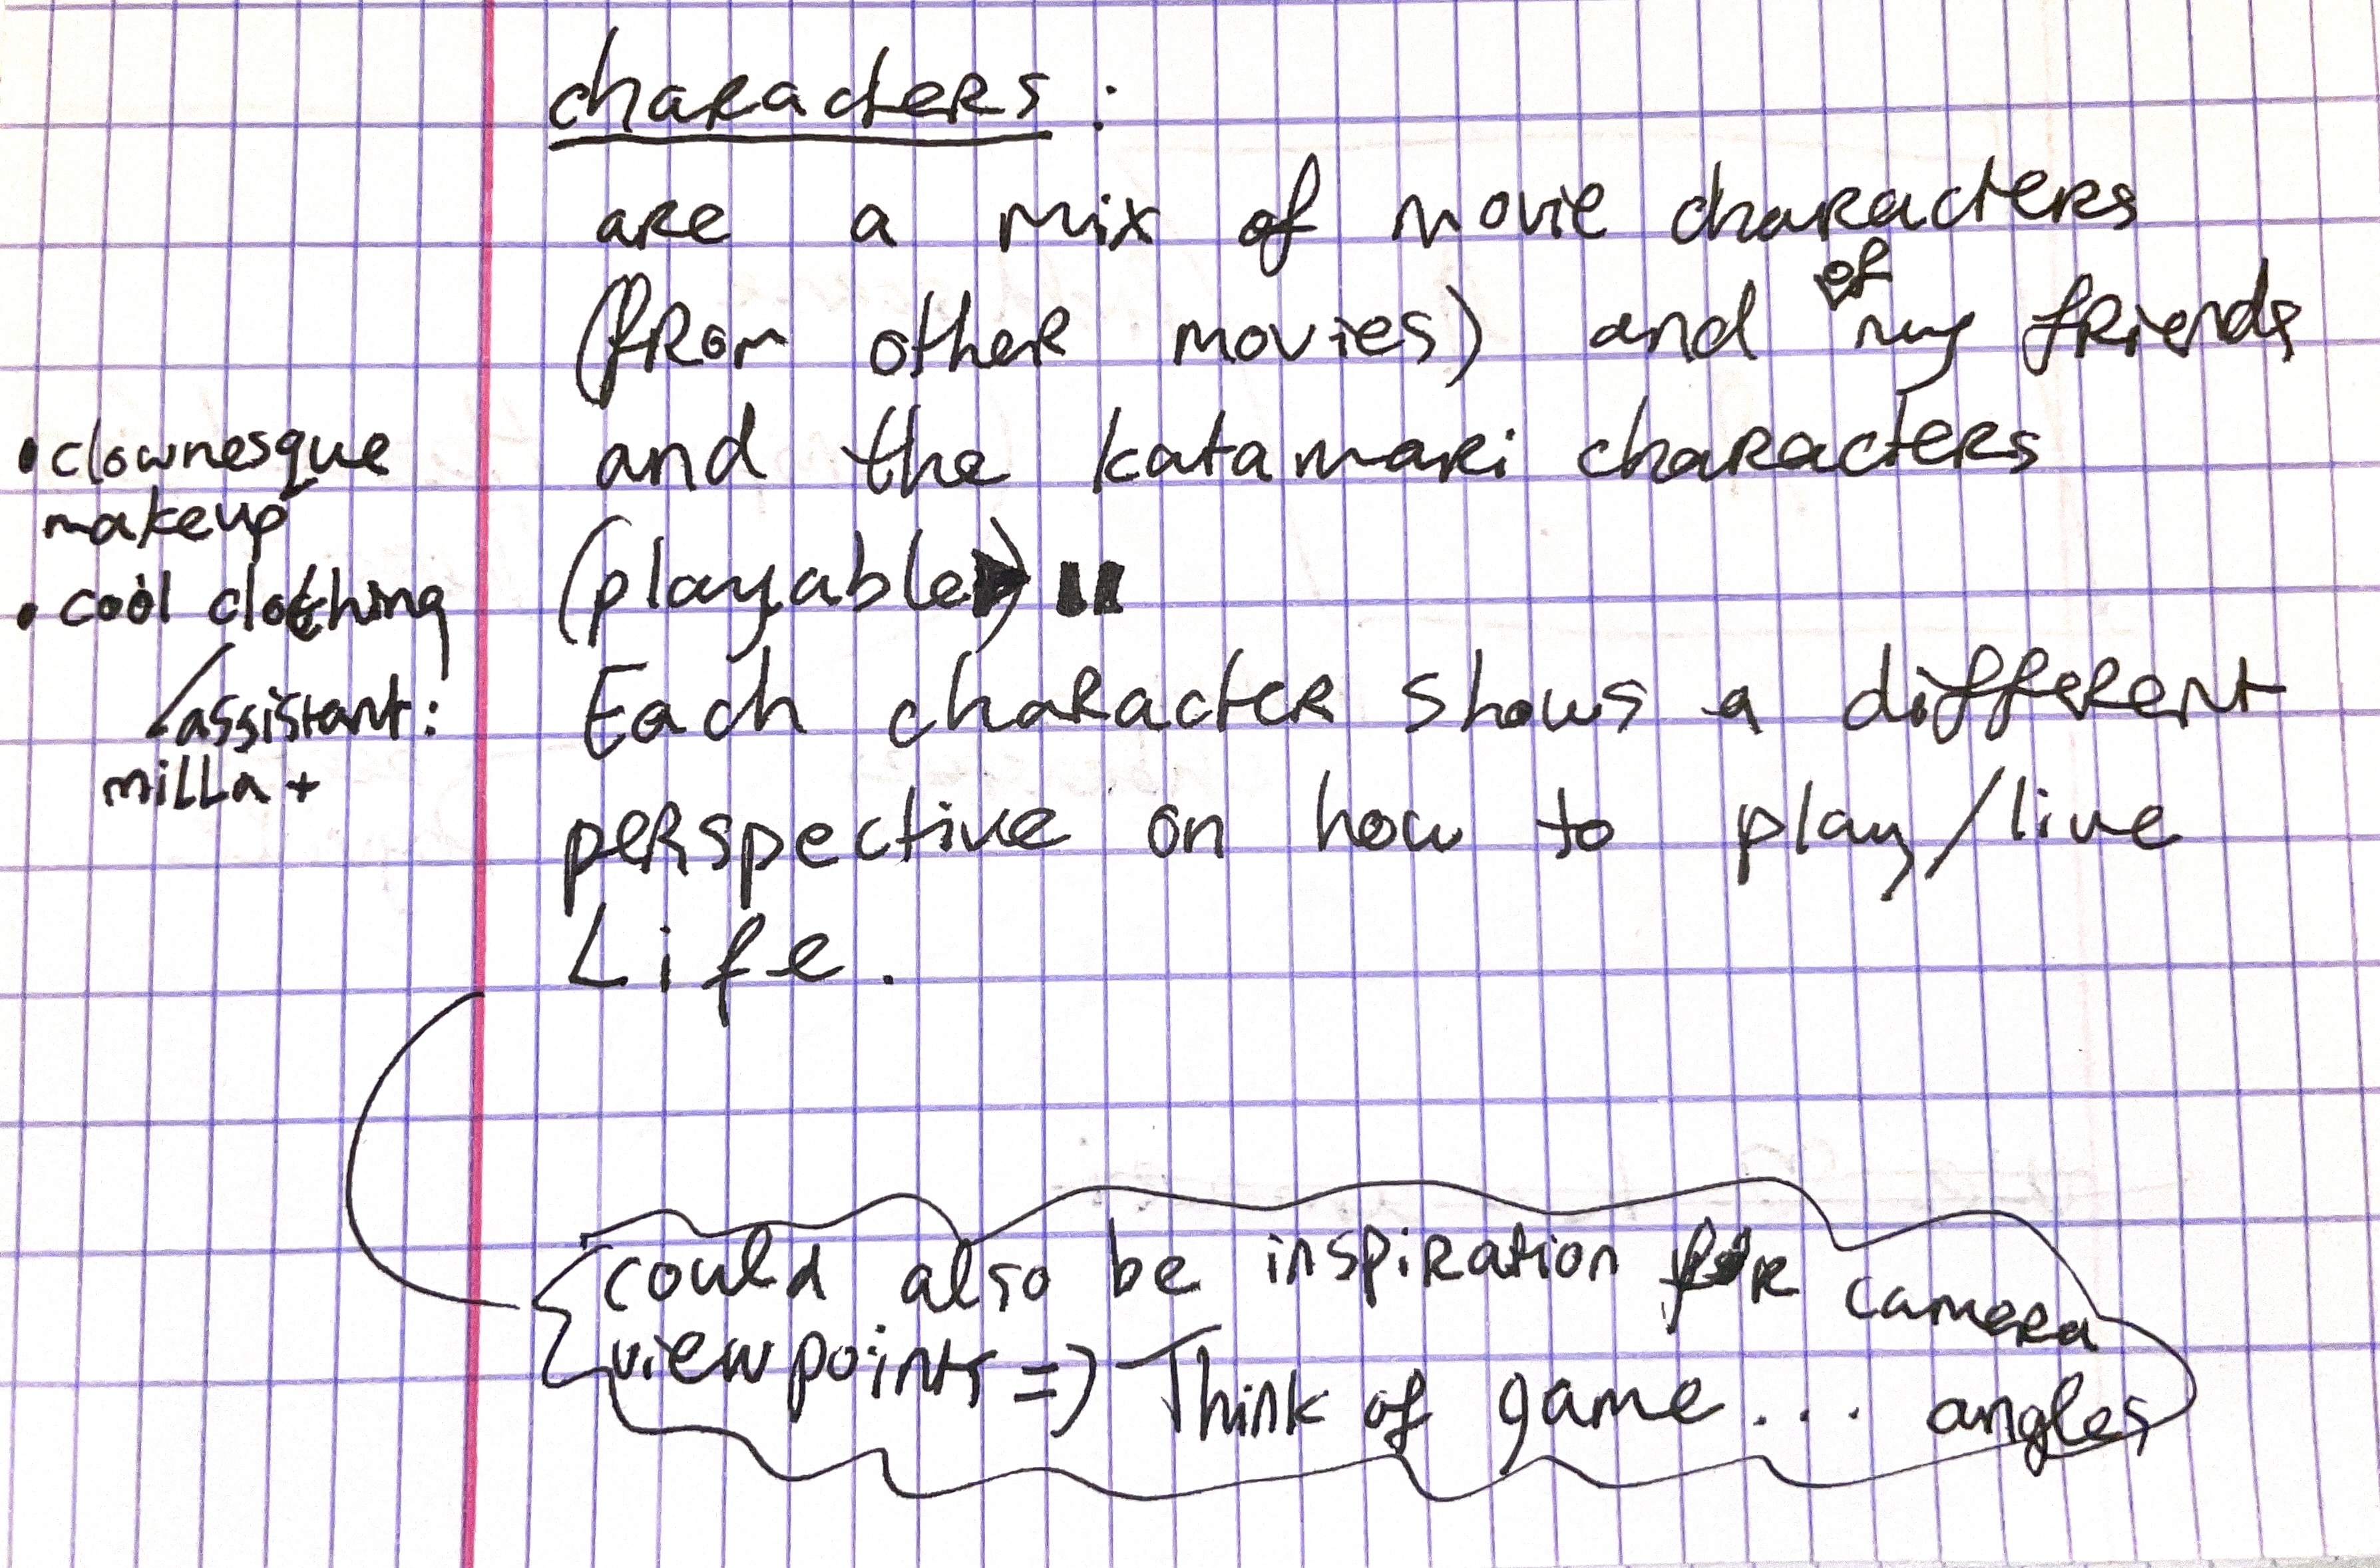 characters :
are a mix of movie characters
(from other movies) and of my friends
and the katamari characters
(playable)
Each character shows a different
perspective on how to play/live
Life.
• clownesque
makeup
• cool clothing
assistant:
milla +
could also be inspiration for camera
viewpoints => Think of game... angles